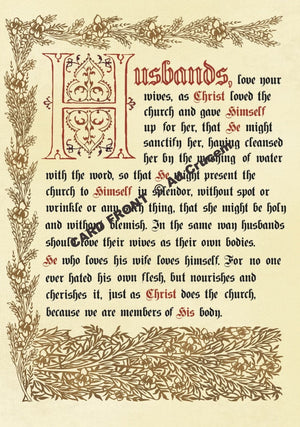 Husbands, love your
wives, as Christ loved the
church and gave Himself
up for her, that He might
sanctify her, having cleansed
her by the washing of water
with the word, so that He might present the
church to Himself in splendor, without spot or
wrinkle or any such thing, that she might be holy
and without blemish. In the same way husbands
should love their wives as their own bodies.
He who loves his wife loves himself. For no one
ever hated his own flesh, but nourishes and
cherishes it, just as Christ does the church,
because we are members of His body.
CARD FRONT